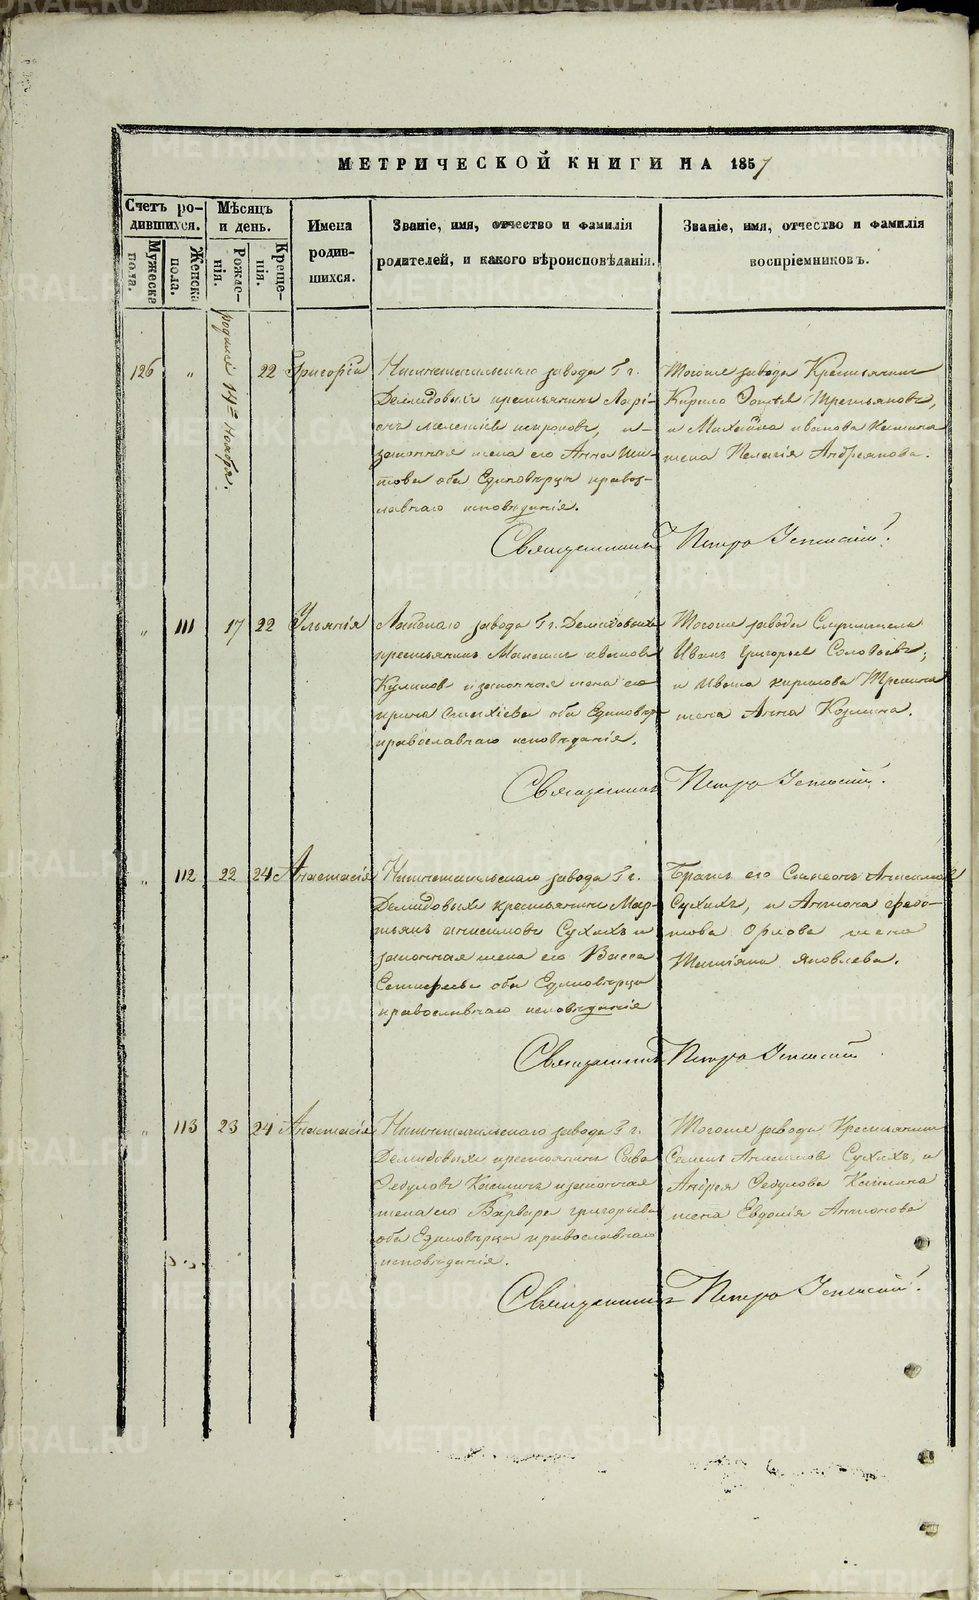 МЕТРИЧЕСКОЙ КНИГИ НА 1857
Счетъ ро-
дившихся.
Мужеска
пола.
Женска
пола.
Мѣсяцъ
и день.
Рожде-
нія.
Креще-
нія.
Имена
родив-
шихся.
Званіе, имя, отчество и фамилія
родителей, и какого вѣроисповѣданія.
Званіе, имя, отчество и фамилія
воспріемниковъ.
126 " родился 14го Ноября. 22 Григорій
Нижнетагильскаго завода Гг.
Демидовыхъ крестьянинъ Ларі-
онъ и
законная жена его Анна Ти-
това оба Единовѣрцы право-
славнаго исповѣданія.
Тогоже завода Крестьянинъ
Кирило Третьяковъ,
и Михаила иванова
жена Пелагія Андреянова.
Священникъ Петръ Успенскій.
" 111 17 22 Ульянія
завода Гг. Демидовыхъ
крестьянинъ иванова
Куликов и законная жена его
ирина оба Единовѣр
православнаго исповѣданія.
Тогоже завода Служитель
Иванъ Григорьев Соловьевъ,
и Ивана кирилова
жена Анна Козмина.
Священникъ Петръ Успенскій.
" 112 22 24 Анастасія
Нижнетагильскаго завода Гг.
Демидовыхъ крестьянинъ Мар-
тьянъ анисимовъ Сухихъ и
законная жена его Васса
оба Единовѣрцы
православнаго исповѣданія
Братъ его Симеонъ Анисимов
Сухихъ, и Антона федо-
това Орлова жена
Татіана яковлева.
Священникъ Петръ Успенскій
" 113 23 24 Анастасія
Нижнетагильскаго завода Гг.
Демидовыхъ крестьянинъ Сава
Федуловъ и законная
жена его Варвара григорьева
оба Единовѣрцы православнаго
исповѣданія.
Тогоже завода Крестьянинъ
Семенъ Анисимов Сухихъ, и
Андрея Федулова
жена Евдокія Антонова
Священникъ Петръ Успенскій.
METRIKI.GASO-URAL.RU